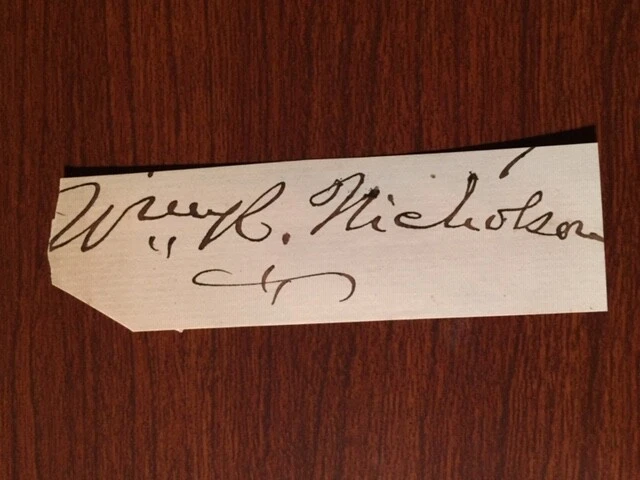 Wm. R. Nicholson